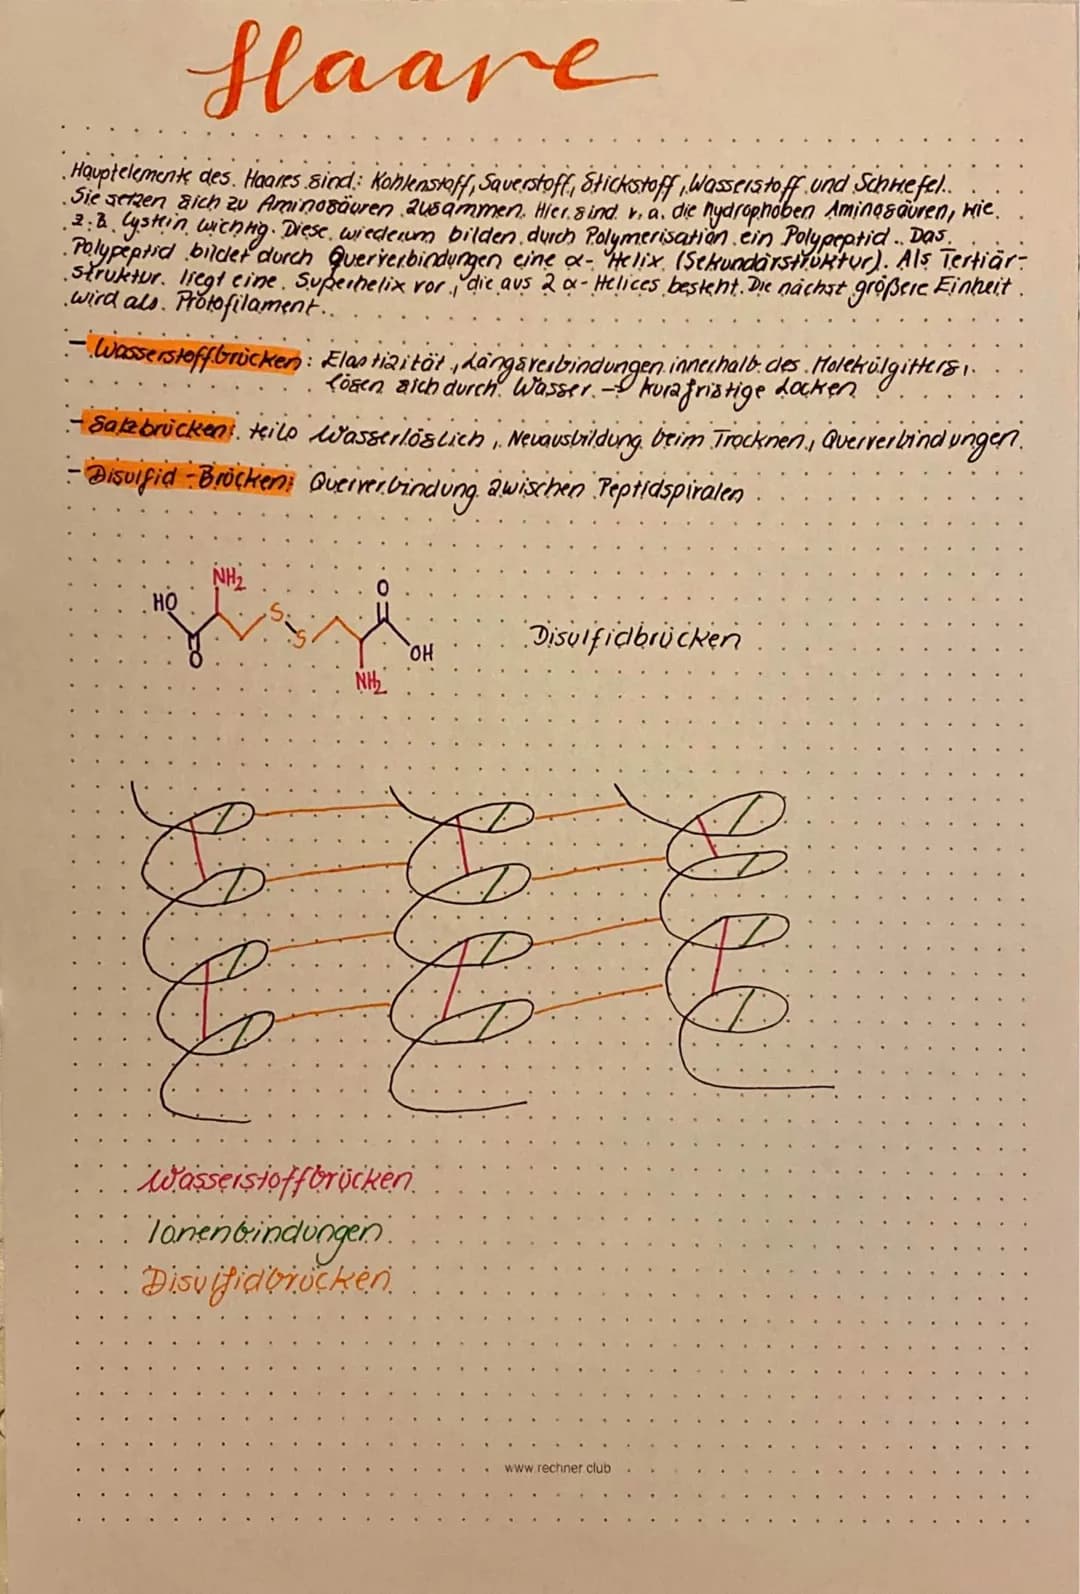 Haare
Hauptelemente des Haares sind: Kohlenstoff, Sauerstoff, Stickstoff, Wasserstoff und Schwefel.
Sie setzen sich zu Aminosäuren zusammen. Hier sind v. a. die hydrophoben Aminosäuren, wie
z.B. Cystein wichtig. Diese wiederum bilden durch Polymerisation ein Polypeptid. Das
Polypeptid bildet durch Querverbindungen eine α-Helix (Sekundärstruktur). Als Tertiär-
struktur liegt eine Superhelix vor, die aus 2 α-Helices besteht. Die nächst größere Einheit
wird als Protofilament.
- Wasserstoffbrücken: Elastizität, Längsverbindungen innerhalb des Molekülgitters,
lösen sich durch Wasser → kurzfristige Locken
- Salzbrücken: teils Wasserlöslich, Neuausbildung beim Trocknen, Querverbindungen
- Disulfid-Brücken: Querverbindung zwischen Peptidspiralen
NH₂
O
HO
S
S
Disulfidbrücken
OH
O
NH₂
Wasserstoffbrücken
Ionenbindungen
Disulfidbrücken
www.rechner.club